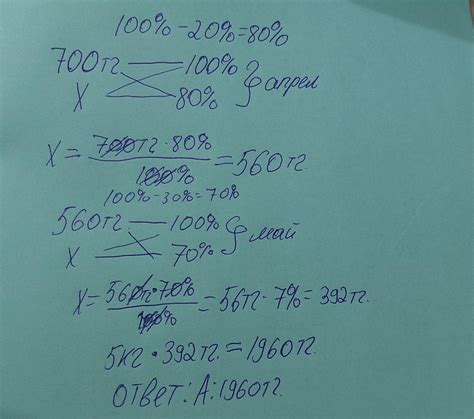 100% - 20% = 80%
700тг — 100%
X — 80% } апрел
X = 700тг · 80% / 100% = 560тг.
100% - 30% = 70%
560тг — 100%
X — 70% } май
X = 560тг · 70% / 100% = 56тг · 7% = 392тг.
5кг · 392тг. = 1960тг.
Ответ: А: 1960тг.